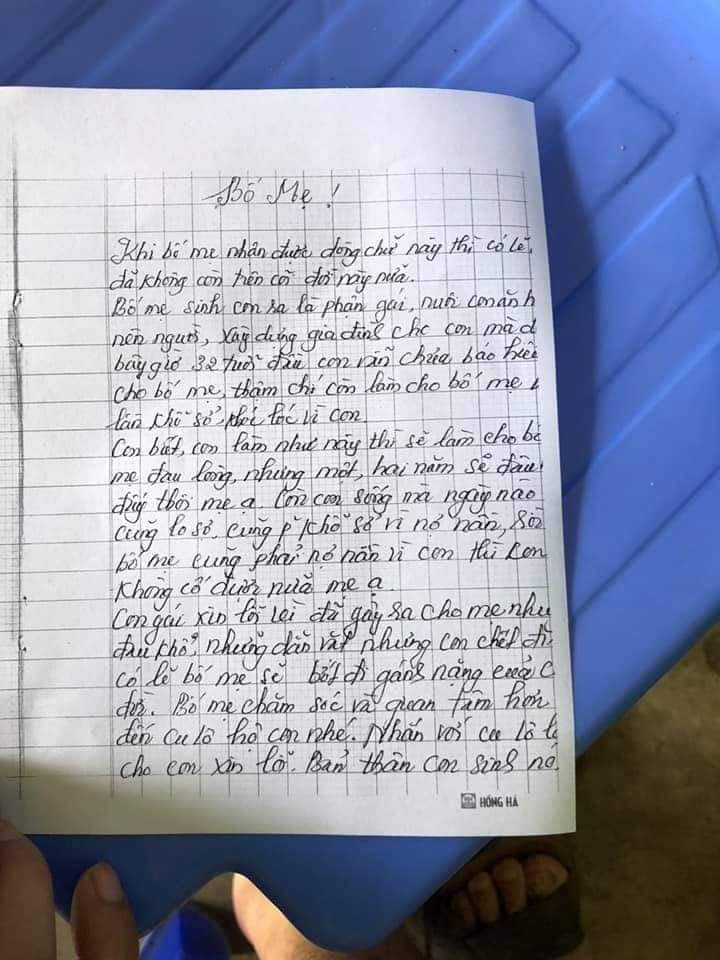 Bố Mẹ !
Khi bố mẹ nhận được dòng chữ này thì có lẽ
đã không còn trên cõi đời này nữa.
Bố mẹ sinh con ra là phận gái, nuôi con ăn h
nên người, xây dựng gia đình cho con mà d
bây giờ 32 tuổi đầu con vẫn chưa báo hiế
cho bố mẹ, thậm chí còn làm cho bố mẹ
lần khổ sở, khóc lóc vì con
Con biết, con làm như này thì sẽ làm cho bố
mẹ đau lòng, nhưng một, hai năm sẽ đâu
đấy thôi mẹ ạ. Còn con sống mà ngày nào
cũng lo sợ, cũng p khổ sở vì nợ nần, rồi
bố mẹ cũng phải nợ nần vì con thì con
không cố được nữa mẹ ạ.
Con gái xin lỗi vì đã gây ra cho mẹ nhữ
đau khổ, những dằn vặt nhưng con chết đi
có lẽ bố mẹ sẽ bớt đi gánh nặng cuộc
đời. Bố mẹ chăm sóc và quan tâm hơn
đến cu lô hộ con nhé. Nhắn với cu lô là
cho con xin lỗi. Bản thân con sinh nó
HỒNG HÀ